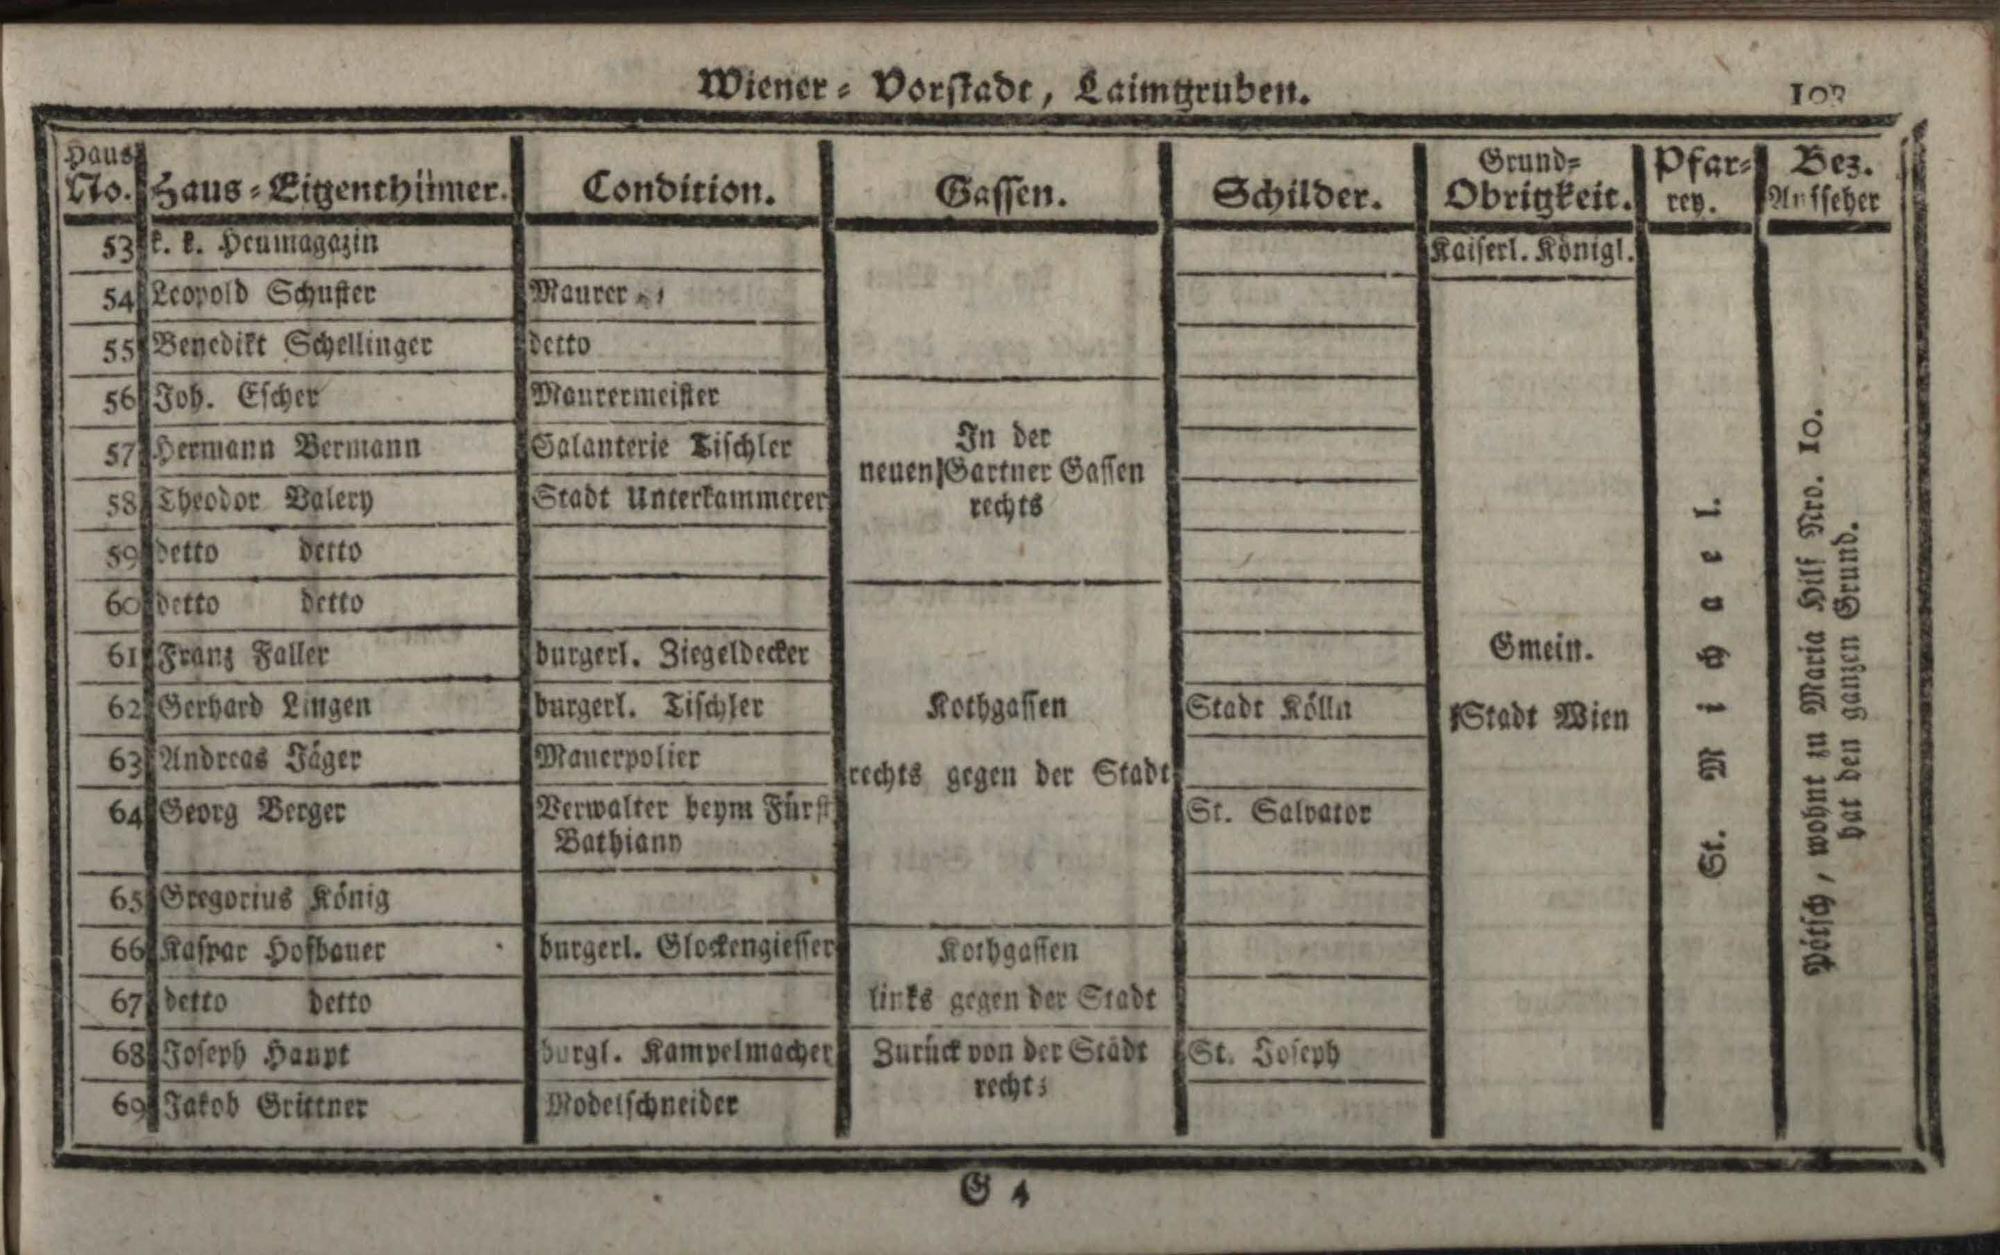 Wiener-Vorstadt, Laimgruben. 103
Haus No. Haus-Eigenthümer. Condition. Gassen. Schilder. Grund-Obrigkeit. Pfar-rey. Bez. Aufseher
53 k. k. Heumagazin Kaiserl. Königl.
54 Leopold Schuster Maurer
55 Benedikt Schellinger detto
56 Joh. Escher Maurermeister
57 Hermann Bermann Galanterie Tischler
58 Theodor Valery Stadt Unterkammerer
59 detto detto
In der
neuen Gartner Gassen
rechts
60 detto detto
61 Franz Faller burgerl. Ziegeldecker
62 Gerhard Lingen burgerl. Tischler Stadt Kölln
63 Andreas Jäger Mauerpolier
64 Georg Berger Verwalter beym Fürst St. Salvator
Bathiany
65 Gregorius König
Kothgassen
rechts gegen der Stadt
66 Kaspar Hofbauer burgerl. Glockengiesser Kothgassen
67 detto detto links gegen der Stadt
68 Joseph Haupt burgl. Kampelmacher Zurück von der Städt St. Joseph
rechts
69 Jakob Grittner Modelschneider
Gmein.
Stadt Wien
St. Michael.
Pötsch, wohnt zu Maria Hilf Nro. 10.
hat den ganzen Grund.
G 4